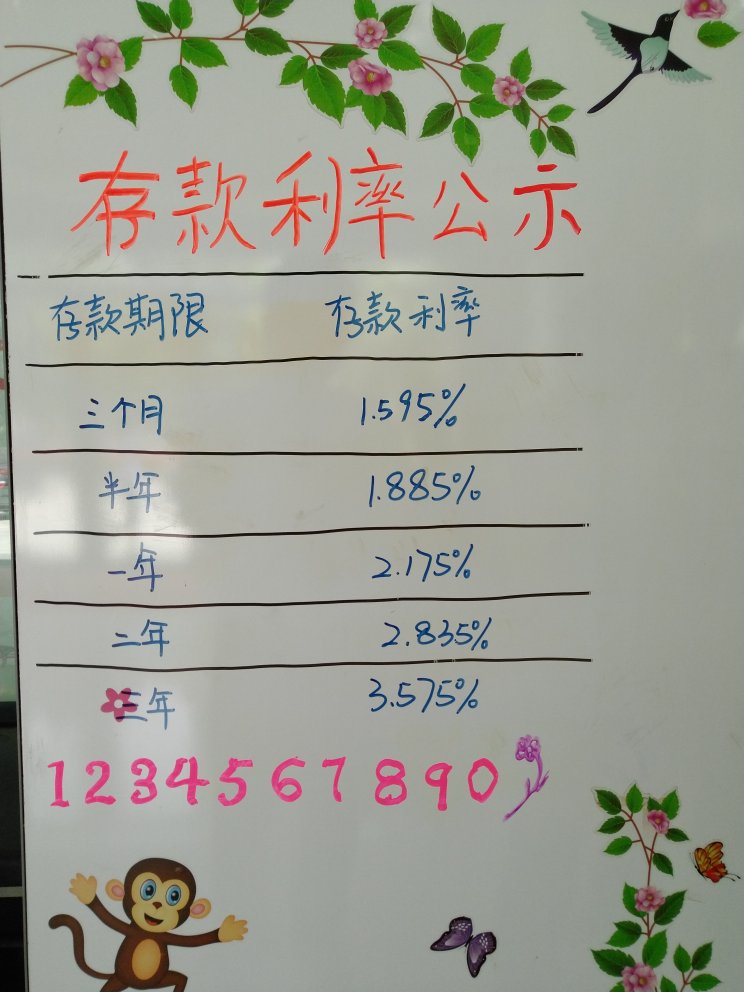 存款利率公示
存款期限 存款利率
三个月 1.595%
半年 1.885%
一年 2.175%
二年 2.835%
三年 3.575%
1234567890